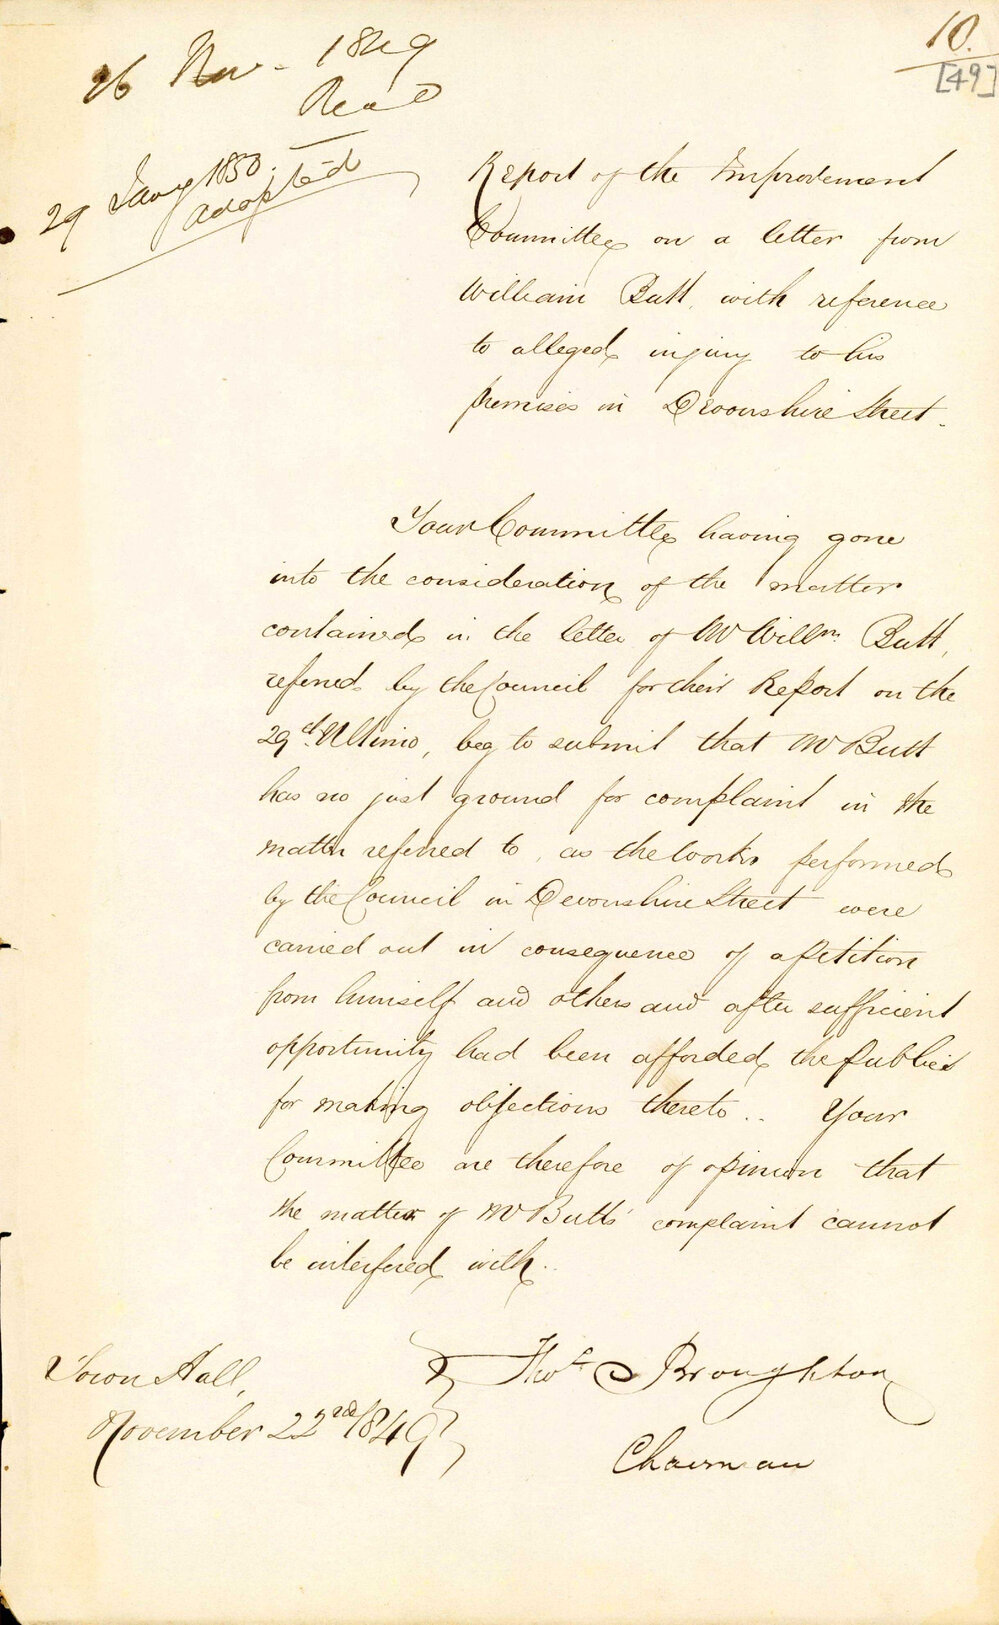 10.
[49]
26 Nov. 1849
Read
29 Jany 1850.
adopted
Report of the Improvement
Committee on a letter from
William Butt, with reference
to alleged injury to his
premises in Devonshire Street.
Your Committee having gone
into the consideration of the matter
contained in the letter of Mr Willm. Butt,
referred by the Council for their Report on the
29th. Ultimo, beg to submit that Mr Butt
has no just ground for complaint in the
matter referred to, as the works performed
by the Council in Devonshire Street were
carried out in consequence of a Petition
from himself and others and after sufficient
opportunity had been afforded the public
for making objections thereto.. Your
Committee are therefore of opinion that
the matter of Mr Butts' complaint cannot
be interfered with..
Town Hall,
November 22nd 1849
Thos. S Broughton
Chairman